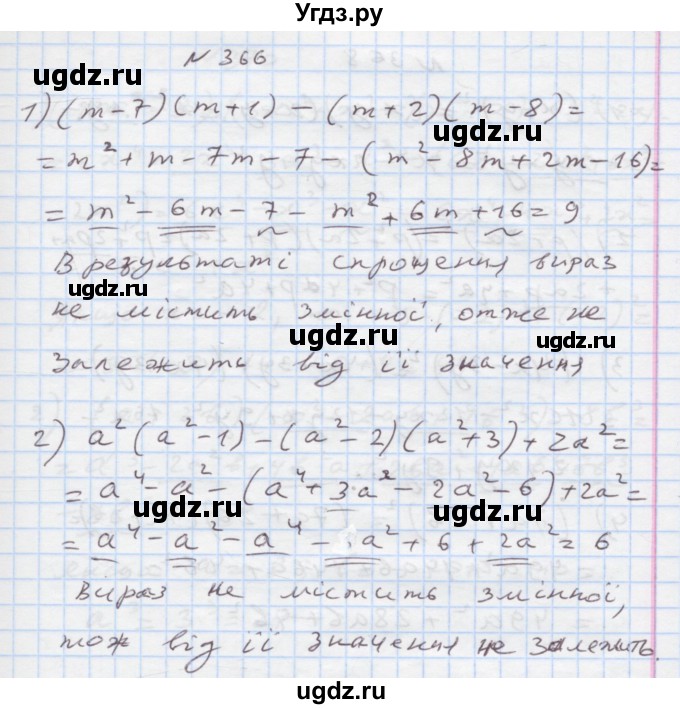 Угдз.ру
№ 366
ugdz.ru
1) (m-7)(m+1) - (m+2)(m-8) =
ugdz.ru
= m² + m - 7m - 7 - (m² - 8m + 2m - 16) =
= m² - 6m - 7 - m² + 6m + 16 = 9
В результаті спрощення вираз
ugdz.ru
не містить змінної, отже не
ugdz.ru
залежить від її значення
2) a²(a²-1) - (a²-2)(a²+3) + 2a² =
ugdz.ru
= a⁴ - a² - (a⁴ + 3a² - 2a² - 6) + 2a² =
ugdz.ru
= a⁴ - a² - a⁴ - a² + 6 + 2a² = 6
Вираз не містить змінної,
ugdz.ru
тож від її значення не залежить.
ugdz.ru
ugdz.ru